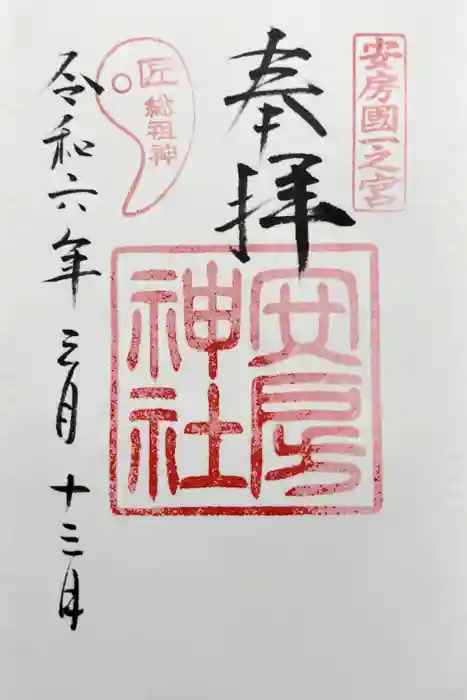 安房國一之宮
奉拝
安房
神社
匠総祖神
令和六年三月十三日